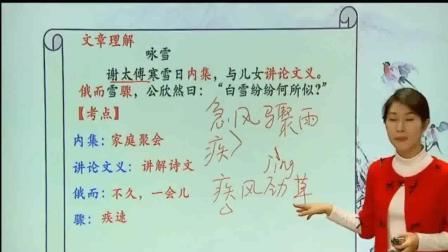 文章理解
咏雪
谢太傅寒雪日内集，与儿女讲论文义。
俄而雪骤，公欣然曰：“白雪纷纷何所似？”
【考点】
内集：家庭聚会
讲论文义：讲解诗文
俄而：不久，一会儿
骤：疾速
急风骤雨
疾
jìng
疾风劲草